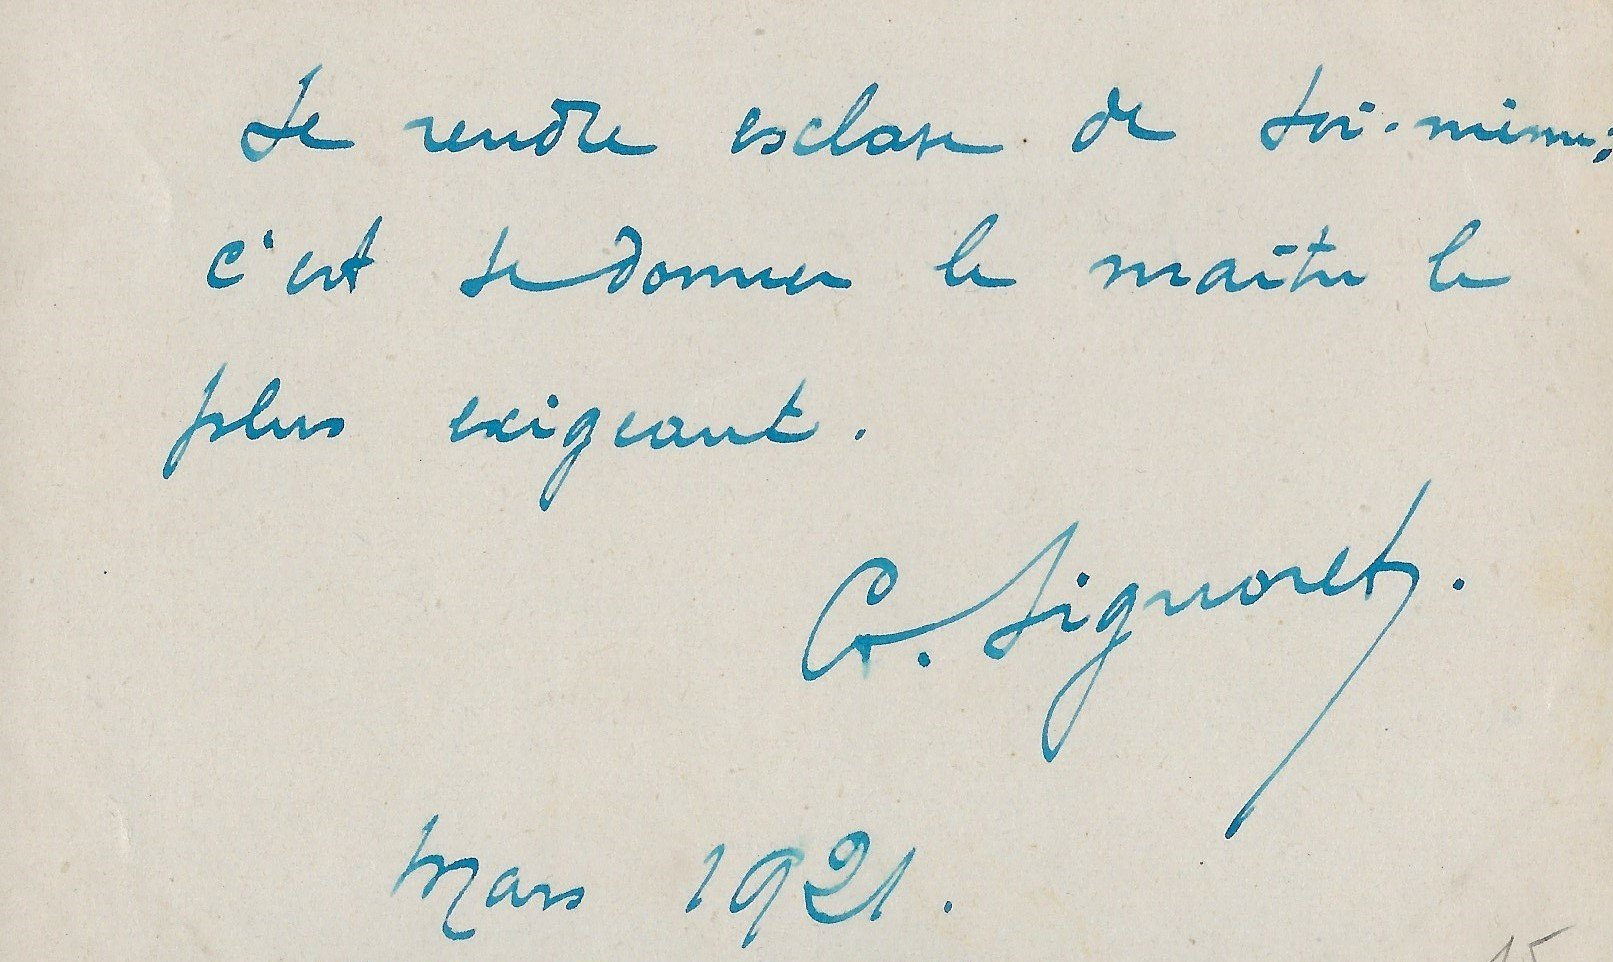 Se rendre esclave de soi-même;
c'est se donner le maître le
plus exigeant.
G. Signoret.
Mars 1921.
15